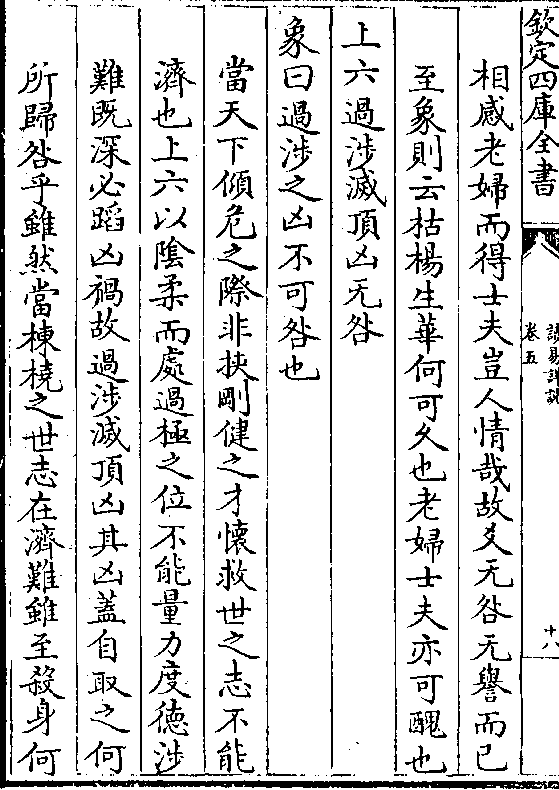 欽定四庫全書
讀易詳說
卷五
十八
相感老婦而得士夫豈人情哉故爻无咎无譽而已
至象則云枯楊生華何可久也老婦士夫亦可醜也
上六過涉滅頂凶无咎
象曰過涉之凶不可咎也
當天下傾危之際非挾剛健之才懷救世之志不能
濟也上六以陰柔而處過極之位不能量力度德涉
難既深必蹈凶禍故過涉滅頂凶其凶蓋自取之何
所歸咎乎雖然當棟橈之世志在濟難雖至殺身何